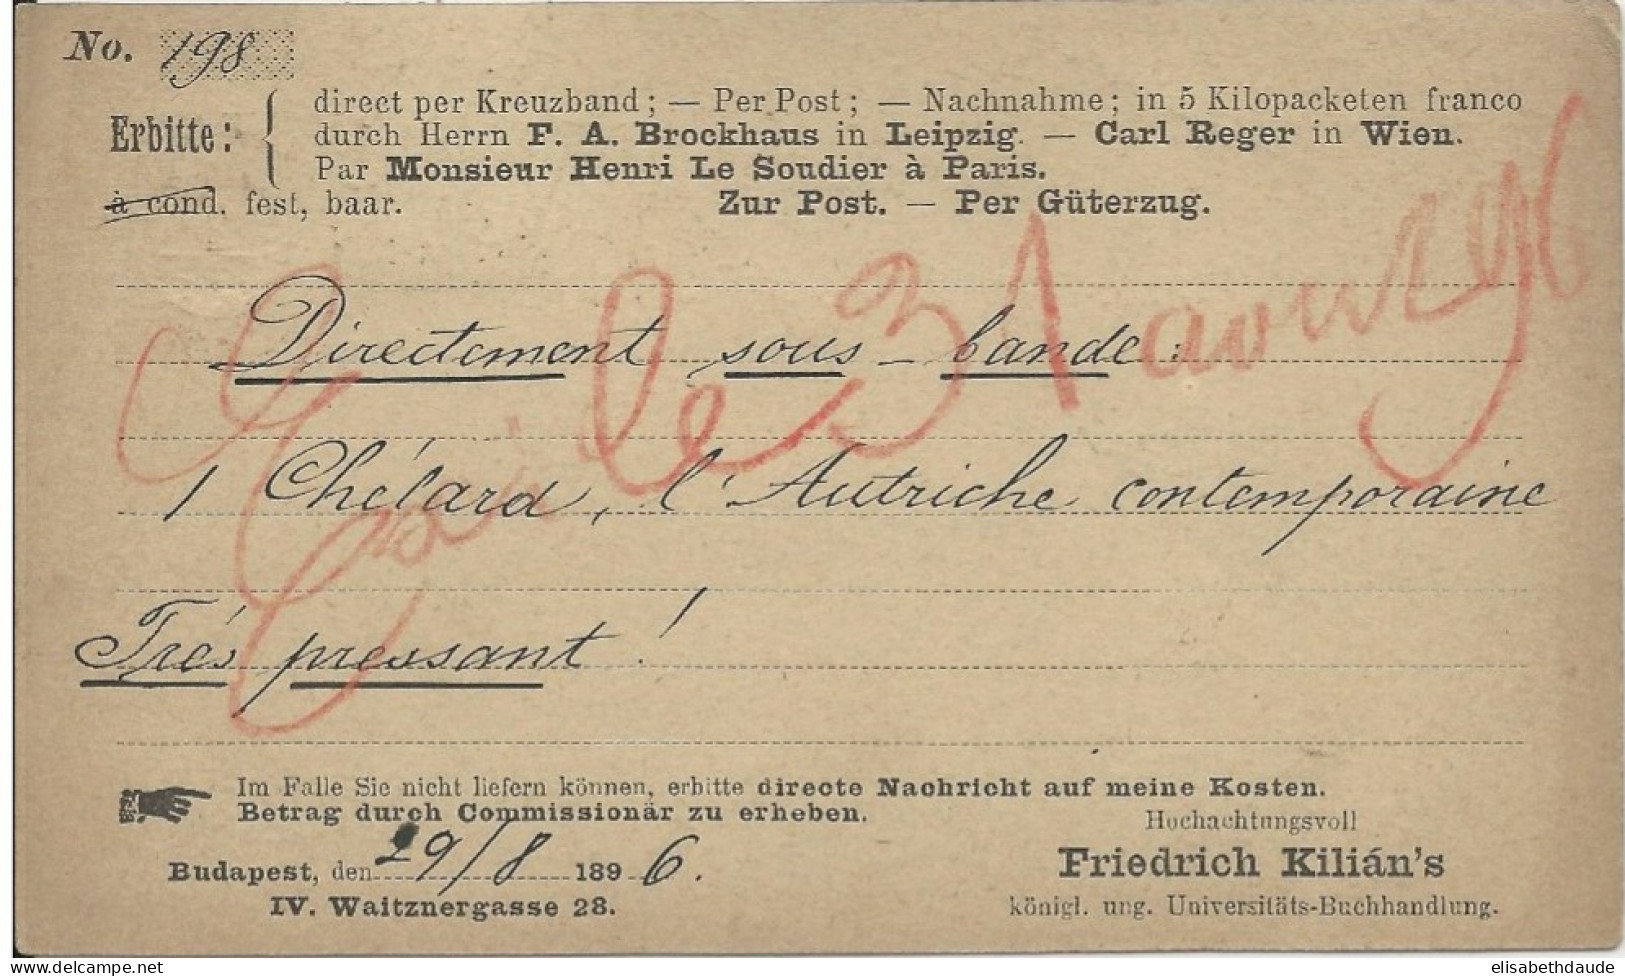 No. 198
Erbitte:
direct per Kreuzband; — Per Post; — Nachnahme; in 5 Kilopacketen franco
durch Herrn F. A. Brockhaus in Leipzig. — Carl Reger in Wien.
Par Monsieur Henri Le Soudier à Paris.
à cond. fest, baar. Zur Post. — Per Güterzug.
Directement sous-bande:
le 31 aout 96
1 Chélard, l'Autriche contemporaine
Très pressant!
Im Falle Sie nicht liefern können, erbitte directe Nachricht auf meine Kosten.
Betrag durch Commissionär zu erheben.
Hochachtungsvoll
Budapest, den 29/8 1896.
Friedrich Kilián's
IV. Waitznergasse 28.
königl. ung. Universitäts-Buchhandlung.
www.delcampe.net
elisabethdaude